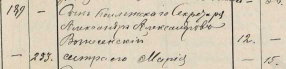 189 — Сынъ Коллежскаго Секретаря
Александръ Александровъ
Вознесенскій 12. —
— 233. сестра его Марія — 15.